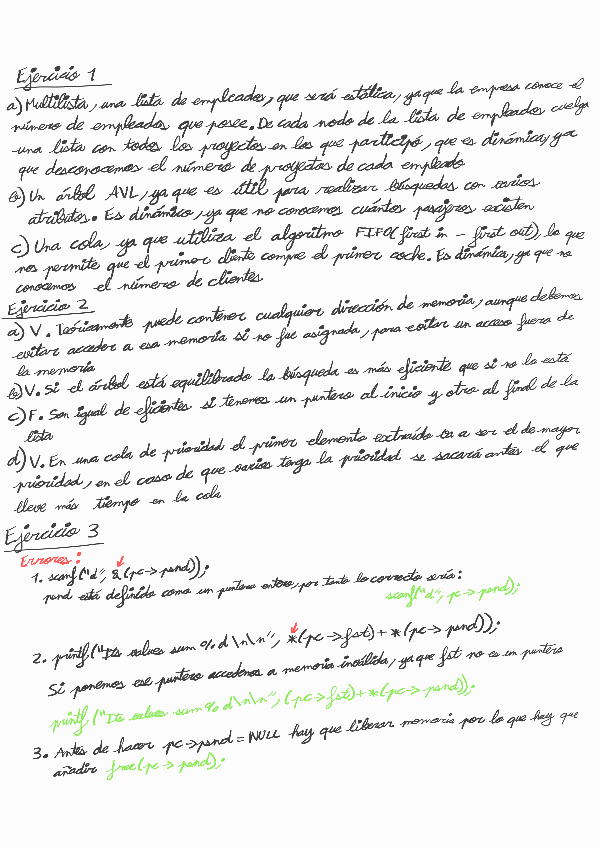 Ejercicio 1
a) Multilista, una lista de empleados, que será estática, ya que la empresa conoce el
número de empleados que posee. De cada nodo de la lista de empleados cuelga
una lista con todos los proyectos en los que participó, que es dinámica, ya
que desconocemos el número de proyectos de cada empleado
b) Un árbol AVL, ya que es útil para realizar búsquedas con varios
atributos. Es dinámico, ya que no conocemos cuántos pasajeros existen
c) Una cola, ya que utiliza el algoritmo FIFO (first in - first out), lo que
nos permite que el primer cliente compre el primer coche. Es dinámica, ya que no
conocemos el número de clientes
Ejercicio 2
a) V. Teóricamente puede contener cualquier dirección de memoria, aunque debemos
evitar acceder a esa memoria si no fue asignada, para evitar un acceso fuera de
la memoria
b) V. Si el árbol está equilibrado la búsqueda es más eficiente que si no lo está
c) F. Son igual de eficientes si tenemos un puntero al inicio y otro al final de la
lista
d) V. En una cola de prioridad el primer elemento extraído va a ser el de mayor
prioridad, en el caso de que varios tenga la prioridad se sacará antes el que
lleve más tiempo en la cola
Ejercicio 3
Errores:
1. scanf("d", &(pc->psnd));
psnd está definido como un puntero entero, por tanto lo correcto sería:
scanf("d", pc->psnd);
2. printf("Its values sum %d\n\n", *(pc->fst)+*(pc->psnd));
Si ponemos ese puntero accedemos a memoria inválida, ya que fst no es un puntero
printf("Its values sum %d\n\n", (pc->fst)+*(pc->psnd));
3. Antes de hacer pc->psnd = NULL hay que liberar memoria por lo que hay que
añadir free(pc->psnd);